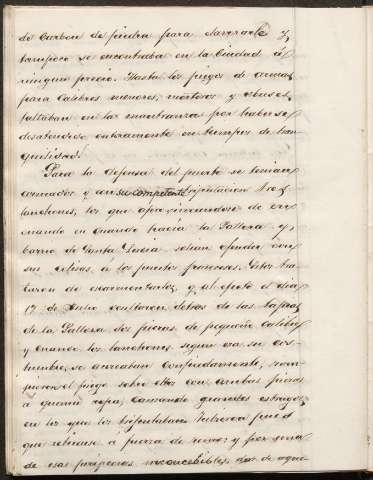 de carbon de piedra para elaborarle y
tampoco se encontraba en la Ciudad á
ningun precio. Hasta los juegos de armas
para calibres menores, morteros y obuses
faltaban en las maestranzas por haberse
desatendido enteramente en tiempos de tran
quilidad.
Para la defensa del puerto se tenian
armados y con su competente tripulacion tres
lanchones, los que aproximandose de cu
cuando en cuando hacia la Galera y
barrio de Santa Lucia solian ofender con
sus tiros á los puestos franceses. Estos tra
taron de escarmentarlos, y al efecto el dia
17 de Julio ocultaron detras de las tapias
de la Galera dos piezas de pequeño calibre
y cuando los lanchones segun era su cos-
tumbre, se acercaban confiadamente, rom
pieron el fuego sobre ellos con ambas piezas
á quema ropa, causando grandes estragos
en los que los tripulaban. Tuvieron pues
que retirarse á fuerza de remos y por una
de esas peripecias inconcebibles, dos de aque